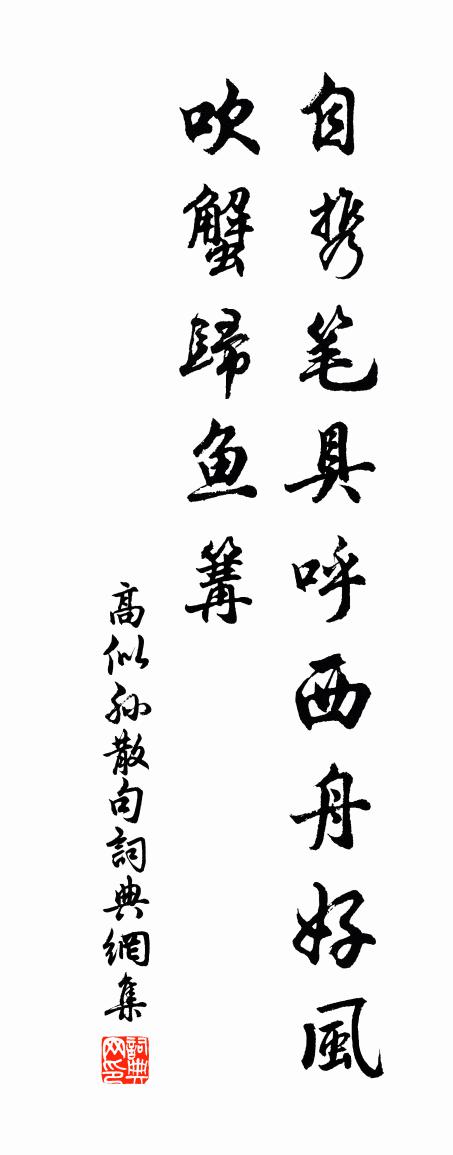 自携笔具呼西舟好風
吹蟹歸鱼篝
高似孙散句詞典網集
詞典网印